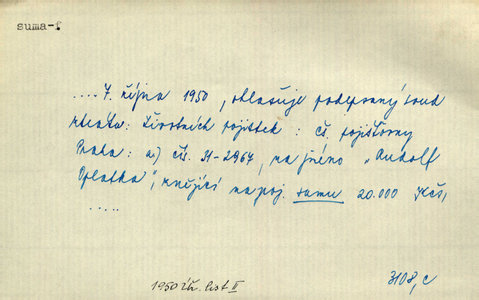 suma-f
....7. října 1950, ohlašuje podepsaný soud
ztrátu: životních pojistek: čs. pojišťovny
Praha: a) čís. 31-2967, na jméno „Rudolf
Oplatka", znějící na poj. sumu 20.000 Kčs,
.....
1950 úř. list II
3108, c